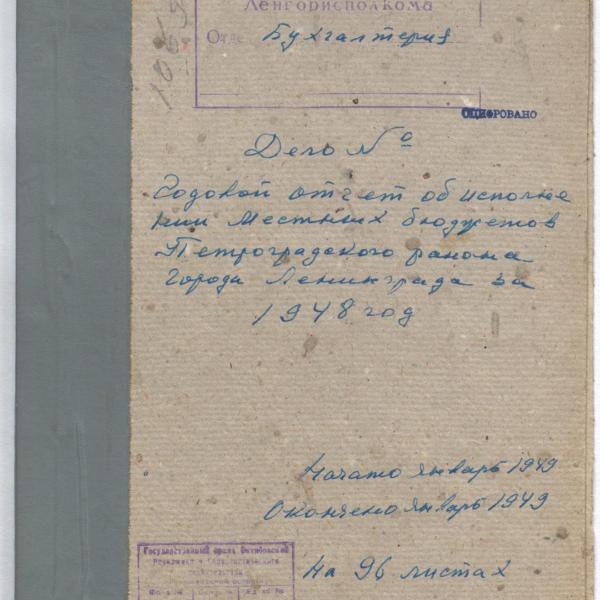 Ленгорисполкома
Отде Бухгалтерия
1069
ОЦИФРОВАНО
Дело №
Годовой отчет об исполне
нии местных бюджетов
Петроградского района
города Ленинграда за
1948 год
Начато январь 1949
Окончено январь 1949
Государственный архив Октябрьской
Революции и Социалистического
на 96 листах